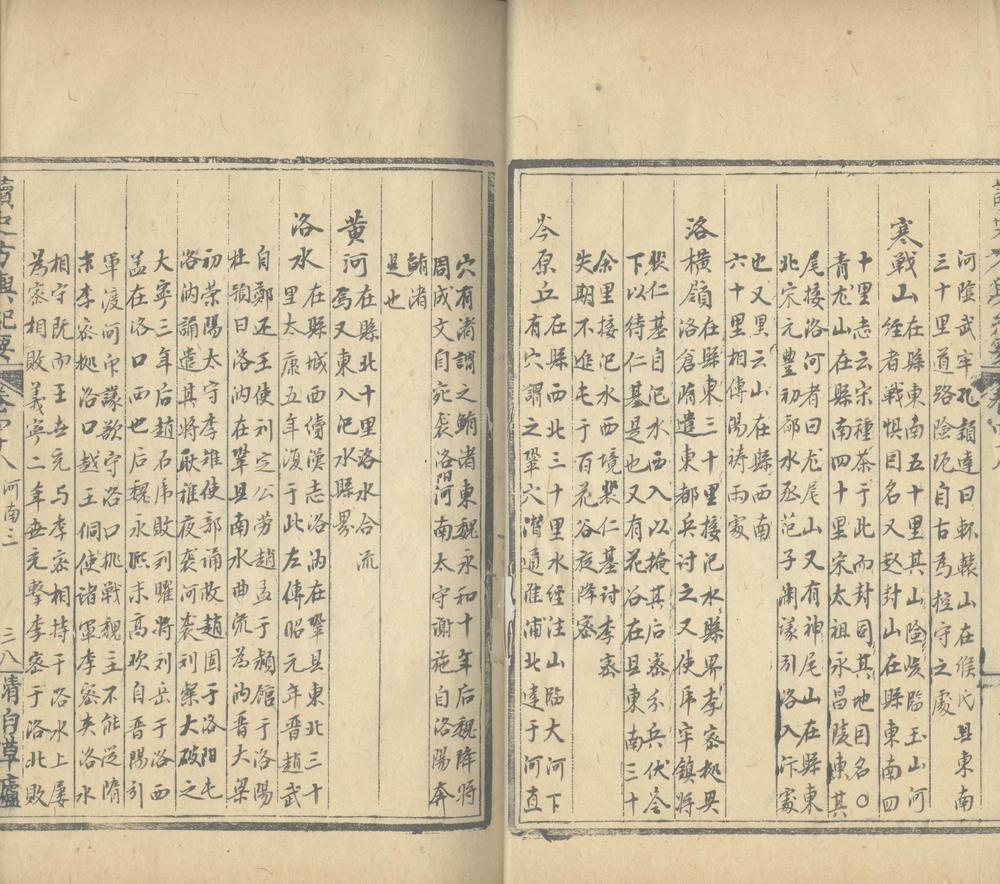 河陰武牢孔穎達曰轘轅山在緱氏县東南
三十里道路險阨自古為控守之處
寒戰山
在縣東南五十里其山險峻臨玉山河
經者戰惧因名又赵封山在縣東南四
十里志云宋種茶于此而封司其地因名〇
青龙山在縣南四十里宋太祖永昌陵東其
尾接洛河者曰龙尾山又有神尾山在縣東
北宋元豐初都水丞范子渊議引洛入汴處
也又黑云山在縣西南
六十里相傳陽祷雨處
洛横嶺
在縣東三十里接汜水縣界李密拠兴
洛倉隋遣東都兵討之又使虎牢鎮将
裴仁基自汜水西入以掩其后密分兵伏岺
下以待仁基是也又有花谷在县東南三十
余里接汜水西境裴仁基討李密
失期不進屯于百花谷夜降密
岑原丘
在縣西北三十里水經注山臨大河下
有穴謂之鞏穴潛通淮浦北達于河直
穴有渚謂之鮪渚東魏永和十年后魏降将
周成文自宛袭洛阳河南太守谢施自洛陽奔
鮪渚
是也
黄河
在縣北十里洛水合流
焉又東入汜水縣界
洛水
在縣城西續漢志洛汭在鞏县東北三十
里太康五年于此左傳昭元年晋趙武
自鄭还王使刘定公劳趙孟于潁館于洛陽
杜預曰洛汭在鞏县南水曲流為汭晋大梁
初荥陽太守李雉使部诵救趙固于洛阳屯
洛汭誦遣其将耿稚夜袭河袭刘粲大破之
大寧三年后趙石虎敗刘曜将刘岳于洛西
盖在洛口西也后魏永熙末高欢自晋陽引
軍渡河議欲守洛口挑戰魏主不能從隋
末李密拠洛口越王侗使诸軍李密夹洛水
相守既而王世充与李密相持于洛水上屡
為密相敗義寧二年世充擊李密于洛北敗
讀史方輿紀要 卷四十八 河南三 三八 清白草廬